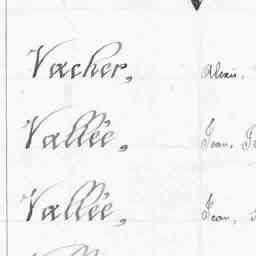 Vacher, Alexis,
Vallée, Jean,
Vallée, Jean,